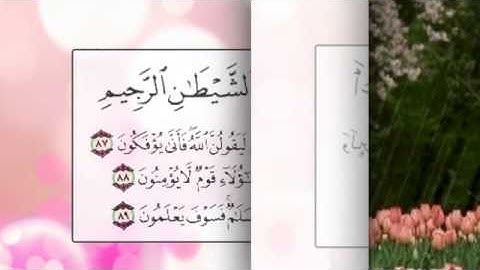 لشَّيْطَٰنِ ٱلرَّجِيمِ
لَيَقُولُنَّ ٱللَّهُ ۖ فَأَنَّىٰ يُؤْفَكُونَ ٨٧
ؤُلَآءِ قَوْمٌ لَّا يُؤْمِنُونَ ٨٨
سَلَٰمٌ ۚ فَسَوْفَ يَعْلَمُونَ ٨٩